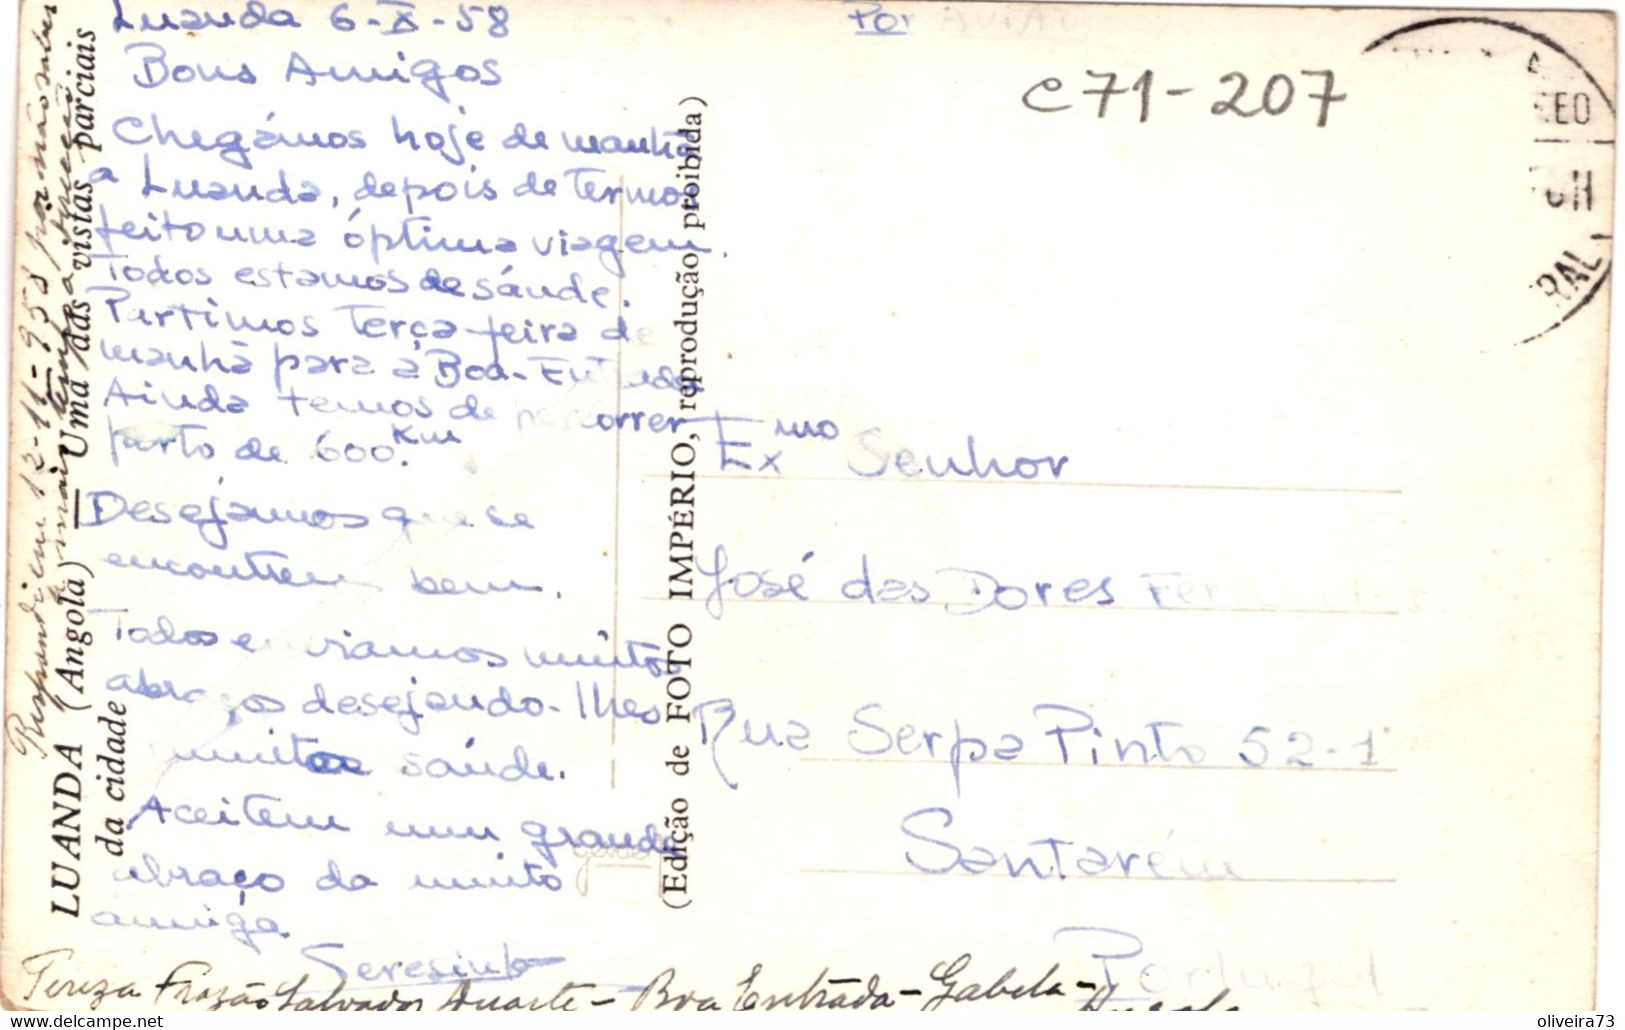 Luanda 6-X-58
Bons Amigos
Chegámos hoje de manhã
a Luanda, depois de termos
feito uma óptima viagem.
Todos estamos de saúde.
Partimos Terça-feira de
manhã para a Boa-Entrada
Ainda temos de percorrer
perto de 600 Km.
Desejamos que se
encontrem bem.
Todos enviamos muitos
abraços desejando-lhes
muita saúde.
Aceitem um grande
abraço da muito
amiga
Teresinha
Tereza Frazão Salvador Duarte - Boa Entrada - Gabela -
Angola
Respondi em 12-11-958 por não saber
há mais tempo a direcção
LUANDA (Angola) Uma das vistas parciais
da cidade
(Edição de FOTO IMPÉRIO, reprodução proibida)
Por Avião
C71-207
Exmo Senhor
José das Dores Fernandes
Rua Serpa Pinto 52-1º
Santarém
Portugal
RAL
oliveira73
www.delcampe.net